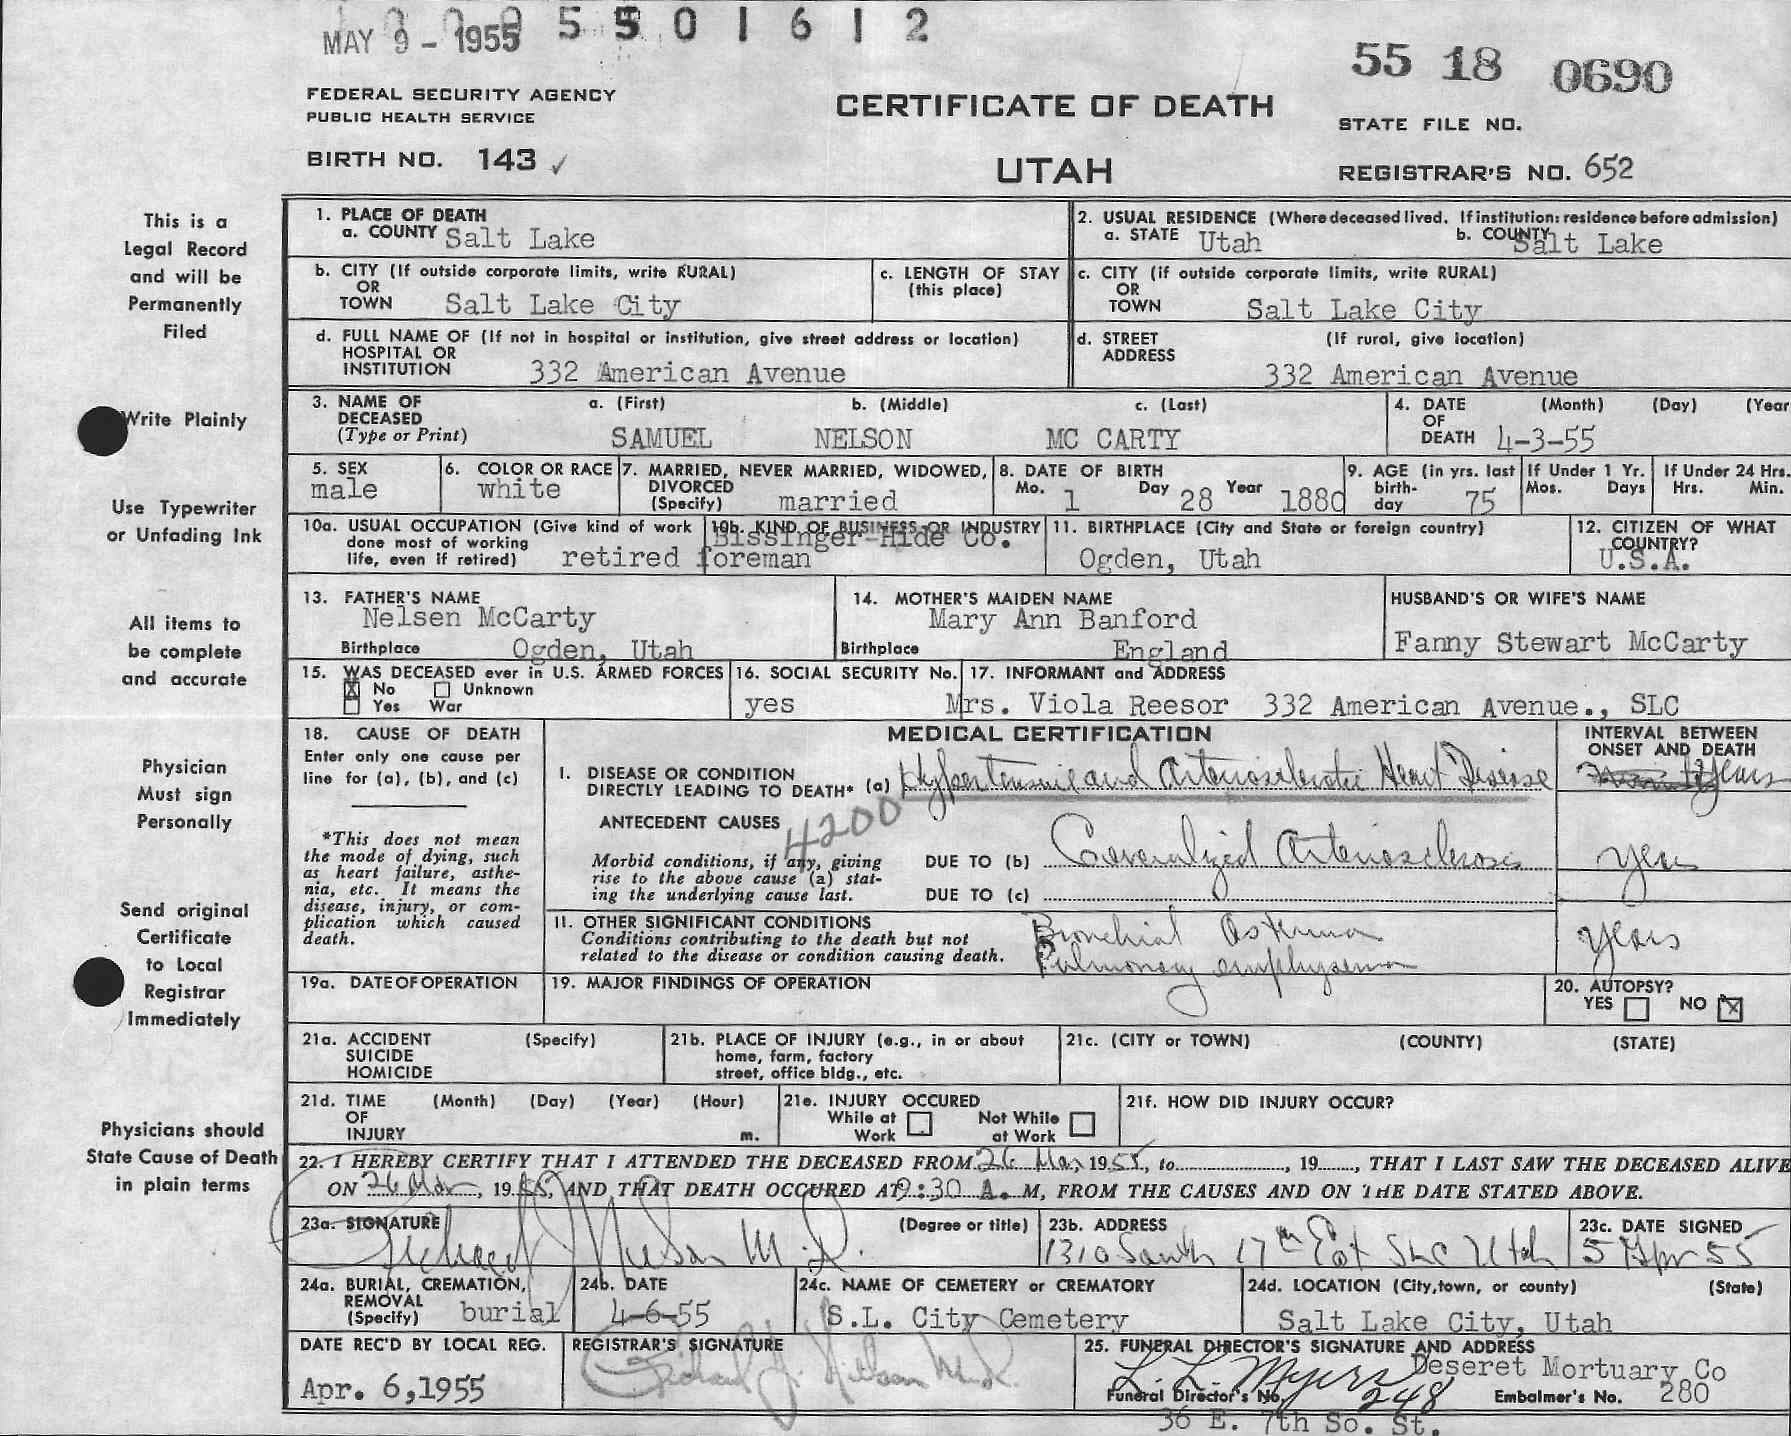 MAY 9 - 1955 5 5 0 1 6 1 2
55 18 0690
FEDERAL SECURITY AGENCY
PUBLIC HEALTH SERVICE
CERTIFICATE OF DEATH
STATE FILE NO.
BIRTH NO. 143 ✓
UTAH
REGISTRAR'S NO. 652
This is a
Legal Record
and will be
Permanently
Filed
Write Plainly
Use Typewriter
or Unfading Ink
All items to
be complete
and accurate
Physician
Must sign
Personally
Send original
Certificate
to Local
Registrar
Immediately
Physicians should
State Cause of Death
in plain terms
1. PLACE OF DEATH
a. COUNTY Salt Lake
2. USUAL RESIDENCE (Where deceased lived. If institution: residence before admission)
a. STATE Utah b. COUNTY Salt Lake
b. CITY (If outside corporate limits, write RURAL)
OR
TOWN Salt Lake City
c. LENGTH OF STAY
(this place)
c. CITY (if outside corporate limits, write RURAL)
OR
TOWN Salt Lake City
d. FULL NAME OF (If not in hospital or institution, give street address or location)
HOSPITAL OR
INSTITUTION 332 American Avenue
d. STREET (If rural, give location)
ADDRESS
332 American Avenue
3. NAME OF a. (First) b. (Middle) c. (Last)
DECEASED
(Type or Print) SAMUEL NELSON MC CARTY
4. DATE (Month) (Day) (Year
OF
DEATH 4-3-55
5. SEX
male
6. COLOR OR RACE
white
7. MARRIED, NEVER MARRIED, WIDOWED,
DIVORCED
(Specify) married
8. DATE OF BIRTH
Mo. 1 Day 28 Year 1880
9. AGE (in yrs. last
birth-
day 75
If Under 1 Yr.
Mos. Days
If Under 24 Hrs.
Hrs. Min.
10a. USUAL OCCUPATION (Give kind of work
done most of working
life, even if retired) retired foreman
10b. KIND OF BUSINESS OR INDUSTRY
Bissinger Hide Co.
11. BIRTHPLACE (City and State or foreign country)
Ogden, Utah
12. CITIZEN OF WHAT
COUNTRY?
U.S.A.
13. FATHER'S NAME
Nelsen McCarty
Birthplace Ogden, Utah
14. MOTHER'S MAIDEN NAME
Mary Ann Banford
Birthplace England
HUSBAND'S OR WIFE'S NAME
Fanny Stewart McCarty
15. WAS DECEASED ever in U.S. ARMED FORCES
No Unknown
Yes War
16. SOCIAL SECURITY No.
yes
17. INFORMANT and ADDRESS
Mrs. Viola Reesor 332 American Avenue., SLC
18. CAUSE OF DEATH
Enter only one cause per
line for (a), (b), and (c)
*This does not mean
the mode of dying, such
as heart failure, asthe-
nia, etc. It means the
disease, injury, or com-
plication which caused
death.
MEDICAL CERTIFICATION
INTERVAL BETWEEN
ONSET AND DEATH
I. DISEASE OR CONDITION
DIRECTLY LEADING TO DEATH* (a) Hypertensive and Arteriosclerotic Heart Disease years
ANTECEDENT CAUSES 4200
Morbid conditions, if any, giving
rise to the above cause (a) stat-
ing the underlying cause last.
DUE TO (b) Generalized Arteriosclerosis years
DUE TO (c)
II. OTHER SIGNIFICANT CONDITIONS
Conditions contributing to the death but not
related to the disease or condition causing death.
Bronchial Asthma years
Pulmonary emphysema
19a. DATE OF OPERATION
19. MAJOR FINDINGS OF OPERATION
20. AUTOPSY?
YES NO X
21a. ACCIDENT (Specify)
SUICIDE
HOMICIDE
21b. PLACE OF INJURY (e.g., in or about
home, farm, factory
street, office bldg., etc.
21c. (CITY or TOWN) (COUNTY) (STATE)
21d. TIME (Month) (Day) (Year) (Hour)
OF
INJURY m.
21e. INJURY OCCURED
While at Not While
Work at Work
21f. HOW DID INJURY OCCUR?
22. I HEREBY CERTIFY THAT I ATTENDED THE DECEASED FROM 26 Mar, 1955, to , 19 , THAT I LAST SAW THE DECEASED ALIVE
ON 26 Mar, 1955, AND THAT DEATH OCCURED AT 9:30 A. M, FROM THE CAUSES AND ON THE DATE STATED ABOVE.
23a. SIGNATURE (Degree or title)
Richard J. Nielson M.D.
23b. ADDRESS
1310 South 17th East SLC Utah
23c. DATE SIGNED
5 Apr 55
24a. BURIAL, CREMATION,
REMOVAL
(Specify) burial
24b. DATE
4-6-55
24c. NAME OF CEMETERY or CREMATORY
S.L. City Cemetery
24d. LOCATION (City, town, or county) (State)
Salt Lake City, Utah
DATE REC'D BY LOCAL REG.
Apr. 6,1955
REGISTRAR'S SIGNATURE
Richard J. Nielson M.D.
25. FUNERAL DIRECTOR'S SIGNATURE AND ADDRESS
L. L. Myers Deseret Mortuary Co
Funeral Director's No. 248 Embalmer's No. 280
36 E. 7th So. St.